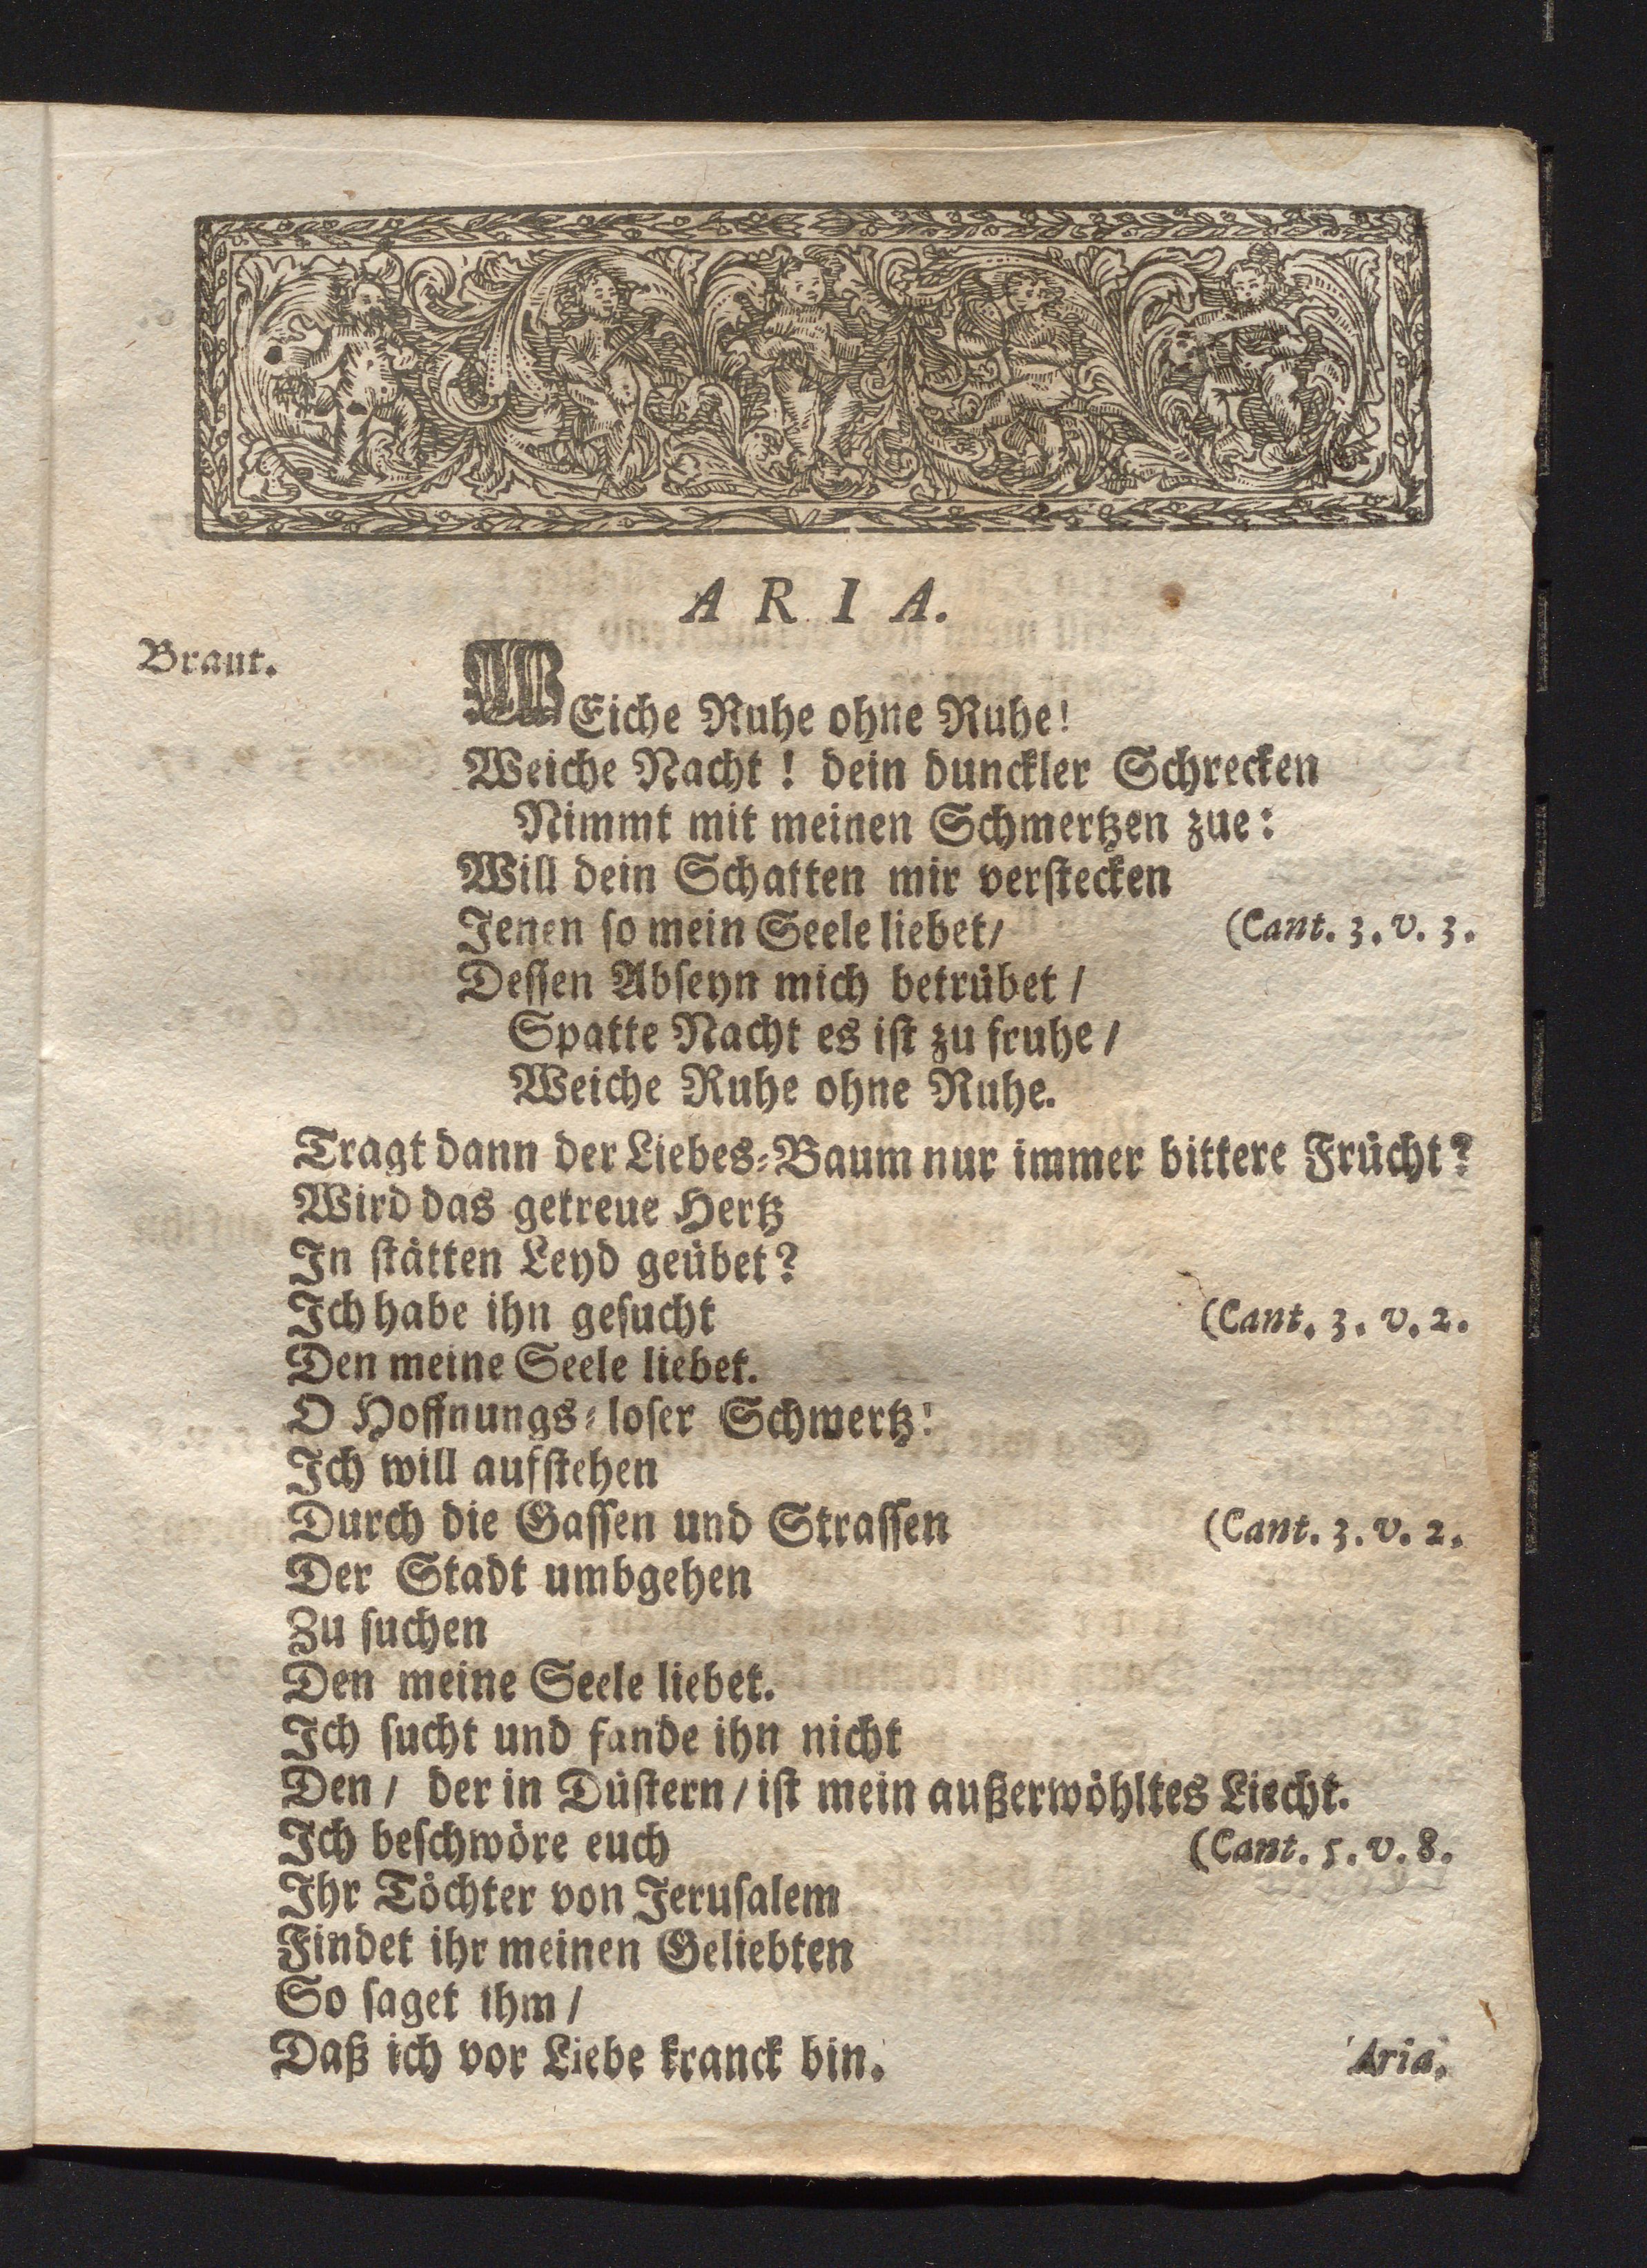 ARIA.
Braut.
WEiche Ruhe ohne Ruhe!
Weiche Nacht! dein dunckler Schrecken
Nimmt mit meinen Schmertzen zue:
Will dein Schatten mir verstecken
Jenen so mein Seele liebet/ (Cant. 3. v. 3.
Dessen Abseyn mich betrübet /
Spatte Nacht es ist zu fruhe /
Weiche Ruhe ohne Ruhe.
Tragt dann der Liebes-Baum nur immer bittere Frücht?
Wird das getreue Hertz
In stätten Leyd geübet?
Ich habe ihn gesucht (Cant. 3. v. 2.
Den meine Seele liebet.
O Hoffnungs-loser Schwertz!
Ich will aufstehen
Durch die Gassen und Strassen (Cant. 3. v. 2.
Der Stadt umbgehen
Zu suchen
Den meine Seele liebet.
Ich sucht und fande ihn nicht
Den / der in Düstern / ist mein außerwöhltes Liecht.
Ich beschwöre euch (Cant. 5. v. 8.
Ihr Töchter von Jerusalem
Findet ihr meinen Geliebten
So saget ihm /
Daß ich vor Liebe kranck bin. Aria.